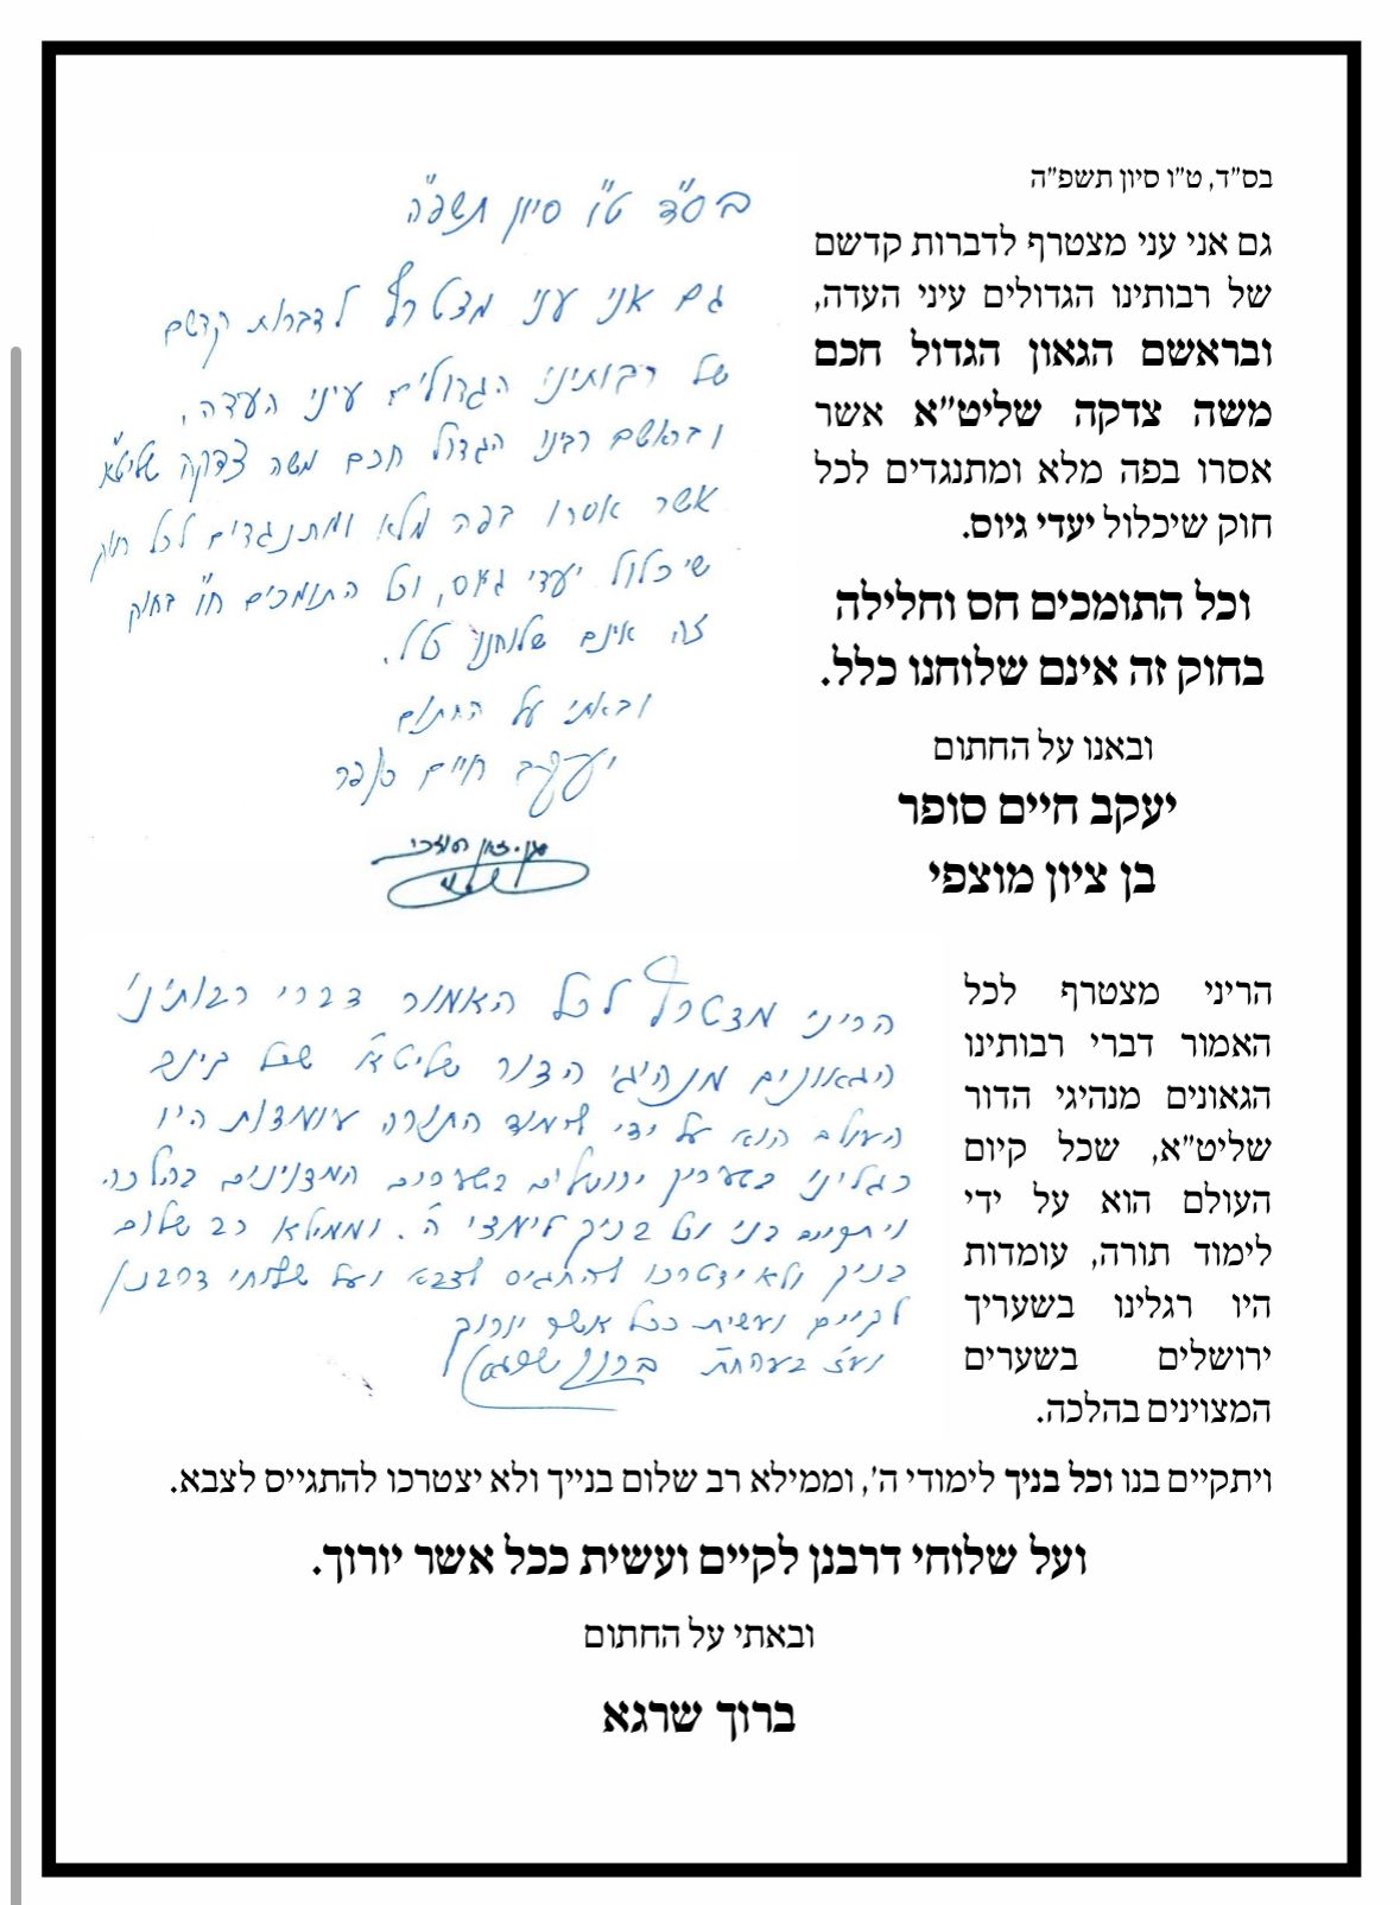 בס"ד, ט"ו סיון תשפ"ה
גם אני עני מצטרף לדברות קדשם
של רבותינו הגדולים עיני העדה,
ובראשם הגאון הגדול חכם
משה צדקה שליט"א אשר
אסרו בפה מלא ומתנגדים לכל
חוק שיכלול יעדי גיוס.
וכל התומכים חס וחלילה
בחוק זה אינם שלוחנו כלל.
ובאנו על החתום
יעקב חיים סופר
בן ציון מוצפי
בס"ד ט"ו סיון תשפ"ה
גם אני עני מצטרף לדברות קדשם
של רבותינו הגדולים עיני העדה,
ובראשם רבינו הגדול חכם משה צדקה שליט"א
אשר אסרו בפה מלא ומתנגדים לכל חוק
שיכלול יעדי גיוס, וכל התומכים ח"ו בחוק
זה אינם שלוחנו כלל.
ובאתי על החתום
יעקב חיים סופר
הריני מצטרף לכל
האמור דברי רבותינו
הגאונים מנהיגי הדור
שליט"א, שכל קיום
העולם הוא על ידי
לימוד תורה, עומדות
היו רגלינו בשעריך
ירושלים בשערים
המצוינים בהלכה.
הריני מצטרף לכל האמור דברי רבותינו
הגאונים מנהיגי הדור שליט"א שכל קיום
העולם הוא על ידי לימוד התורה עומדות היו
רגלינו בשעריך ירושלים בשערים המצוינים בהלכה
ויתקיים בנו וכל בניך לימודי ה'. וממילא רב שלום
בניך ולא יצטרכו להתגייס לצבא ועל שלוחי דרבנן
לקיים ועשית ככל אשר יורוך
ברוך שרגא
ויתקיים בנו וכל בניך לימודי ה', וממילא רב שלום בנייך ולא יצטרכו להתגייס לצבא.
ועל שלוחי דרבנן לקיים ועשית ככל אשר יורוך.
ובאתי על החתום
ברוך שרגא